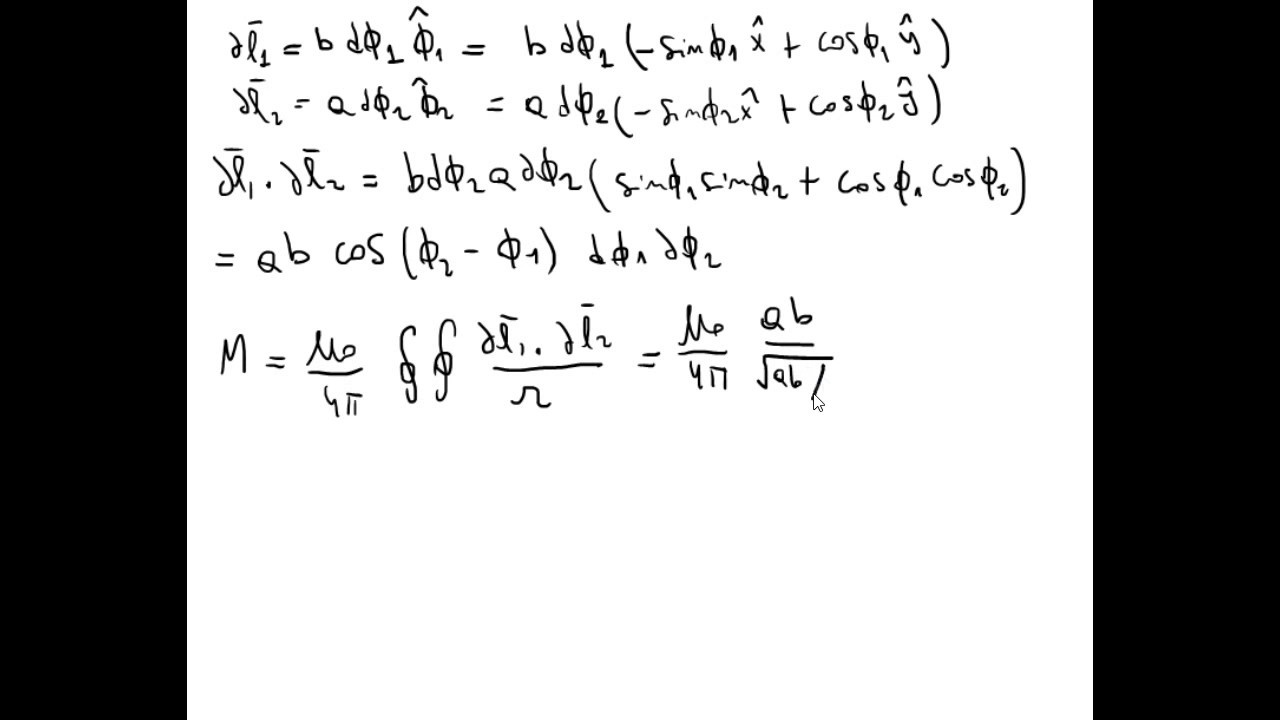 dl̄₁ = b dϕ₁ ϕ̂₁ = b dϕ₁ (-sinϕ₁ x̂ + cosϕ₁ ŷ)
dl̄₂ = a dϕ₂ ϕ̂₂ = a dϕ₂ (-sinϕ₂ x̂ + cosϕ₂ ŷ)
dl̄₁ · dl̄₂ = b dϕ₂ a dϕ₂ (sinϕ₁ sinϕ₂ + cosϕ₁ cosϕ₂)
= ab cos (ϕ₂ - ϕ1) dϕ₁ dϕ₂
M = μ₀/4π ∮∮ dl̄₁ · dl̄₂ / r = μ₀/4π ab/√ab/